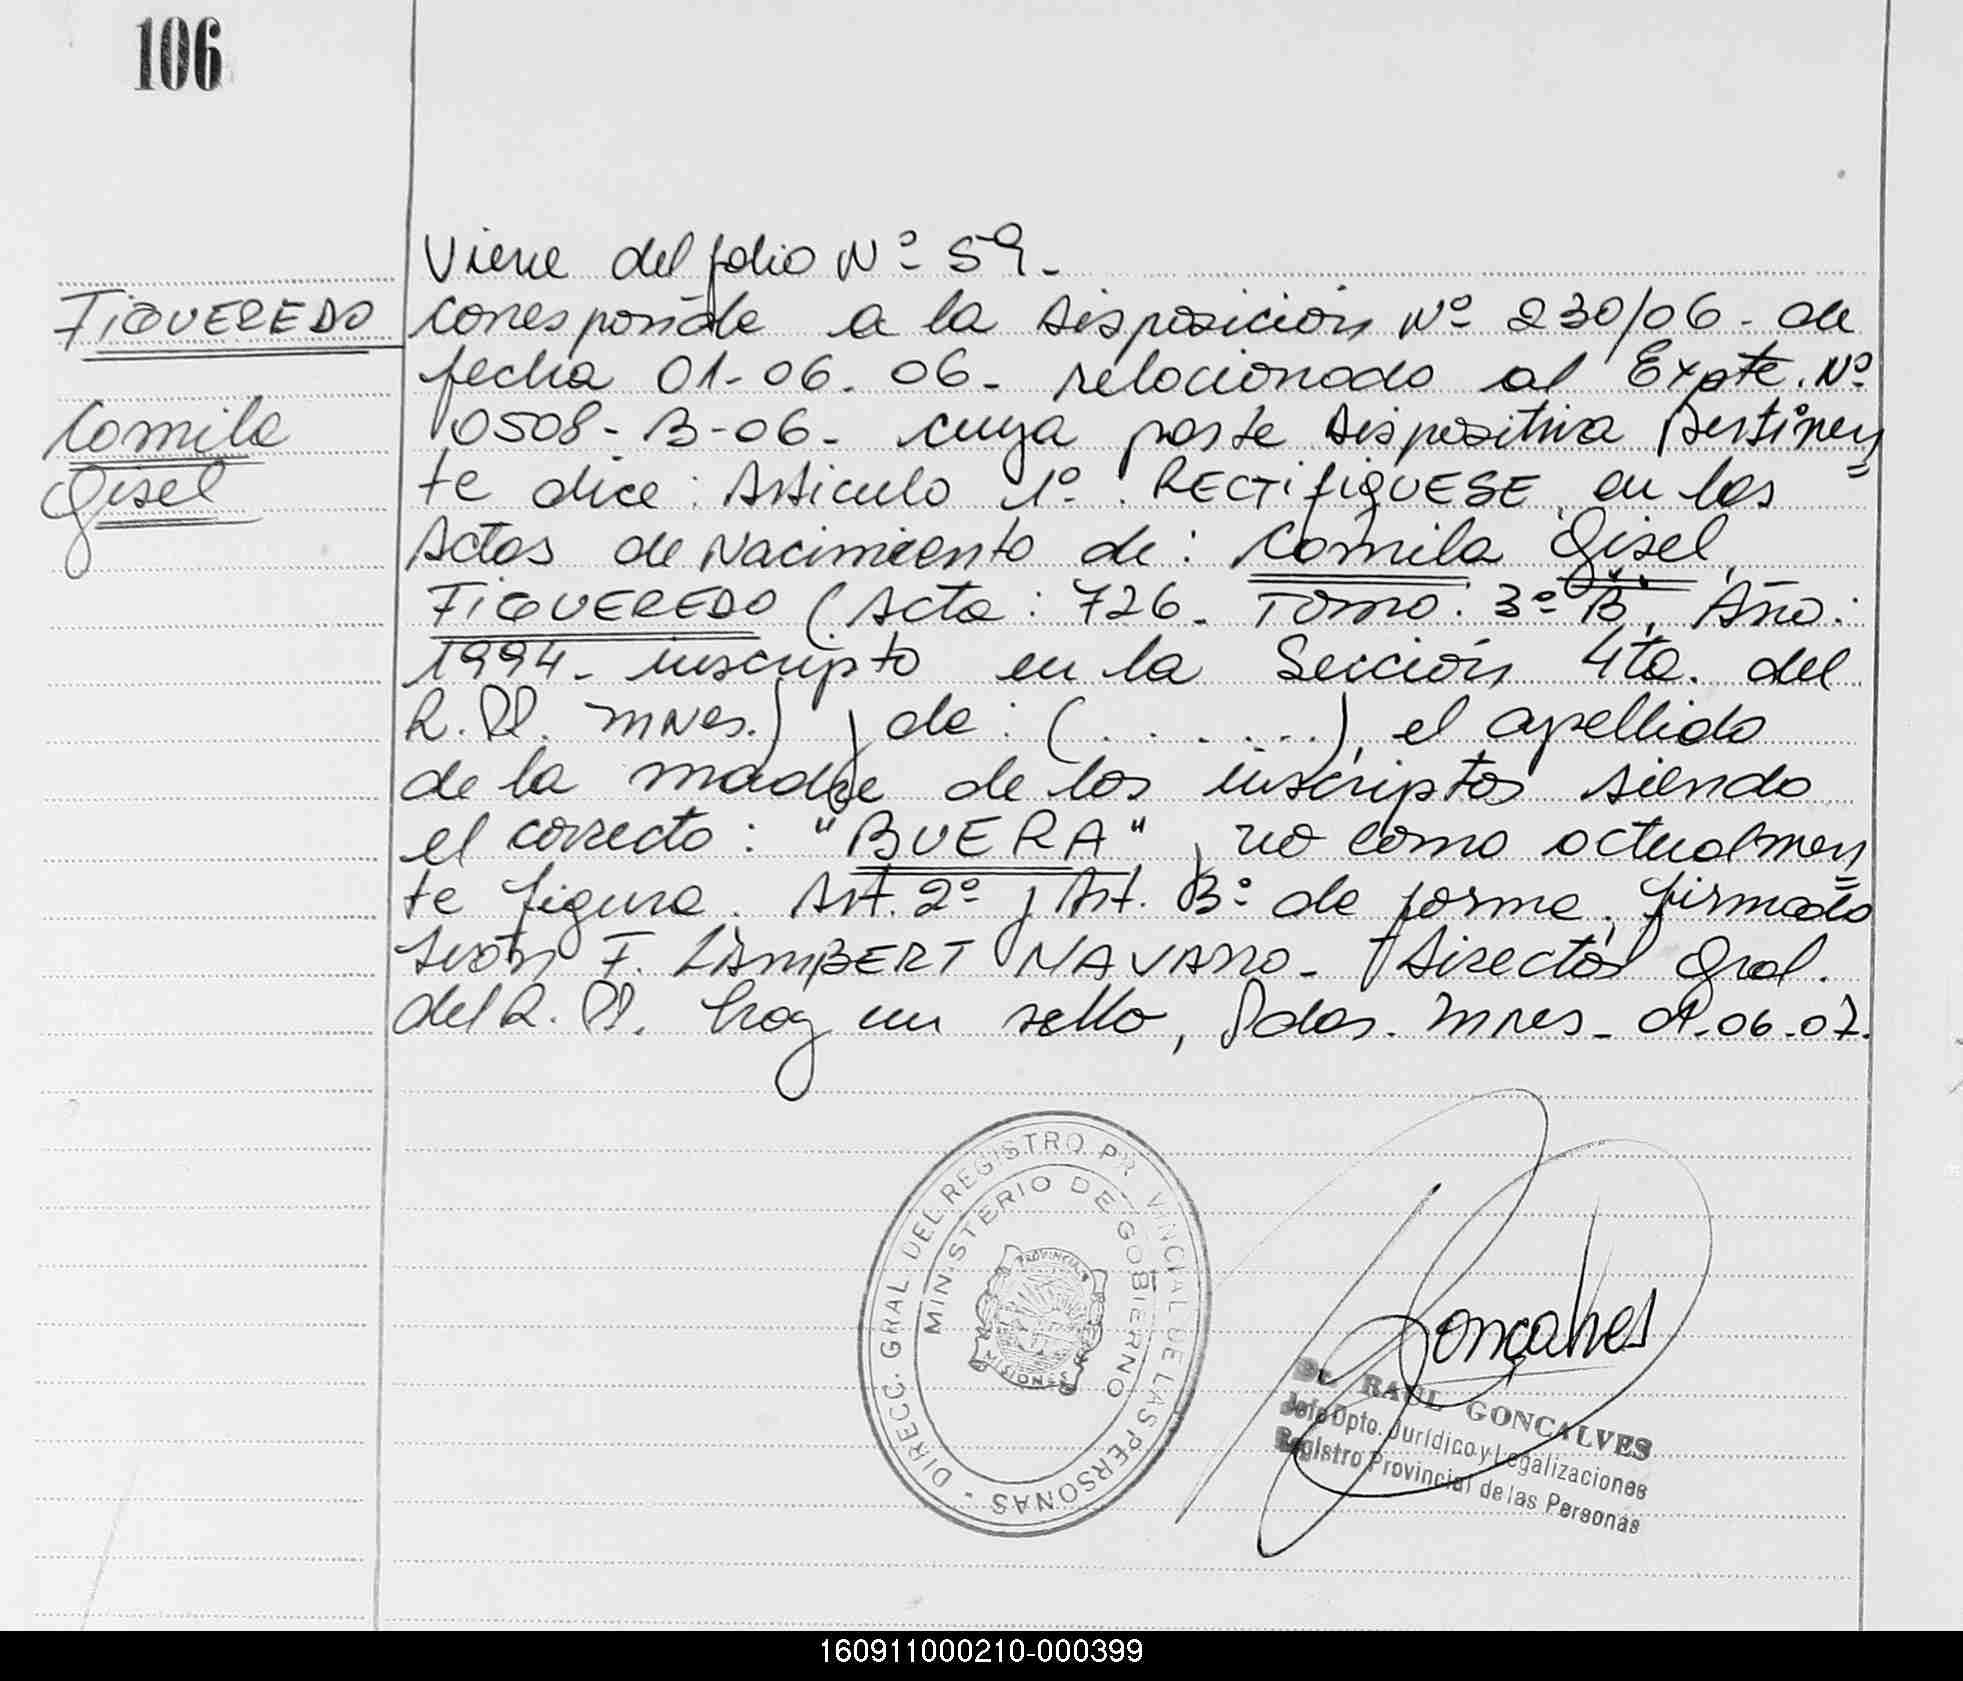 106
Viene del folio Nº 59.
FIGUEREDO
Camila
Gisel
corresponde a la disposición Nº 230/06 - de
fecha 01-06-06- relacionado al Expte. Nº
0508-B-06- cuya parte dispositiva pertinen
te dice: Articulo 1º. RECTIFIQUESE, en las
Actas de Nacimiento de: Camila Gisel,
FIGUEREDO (Acta: 726. Tomo: 3º "B", Año:
1994- inscripto en la Sección 4ta. del
R.PP. mnes.) y de: (.......), el apellido
de la madre de los inscriptos siendo
el correcto: "BUERA", y no como actualmen
te figura. Art. 2º y Art. 3º de forma, firmado
Iván F. LAMBERT NAVARRO - Director Gral.
del R.PP. hay un sello, Pdas. Mnes- 01-06-07.
DIRECC. GRAL. DEL REGISTRO PR VINCIAL DE LAS PERSONAS -
MINISTERIO DE GOBIERNO
PROVINCIA
MISIONES
Goncalves
Dr. RAUL GONCALVES
Jefe Dpto. Jurídico y Legalizaciones
Registro Provincial de las Personas
160911000210-000399